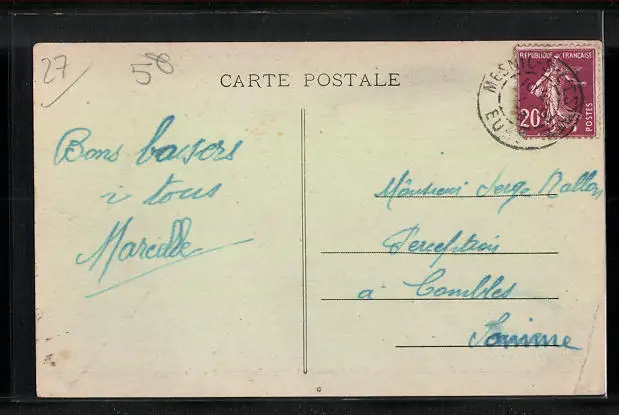 27
58
CARTE POSTALE
REPUBLIQUE FRANÇAISE
20c
POSTES
MESNIL
EURE
Bons baisers
à tous
Marcelle
Monsieur Serge Mallon
Perception
à Combles
Somme